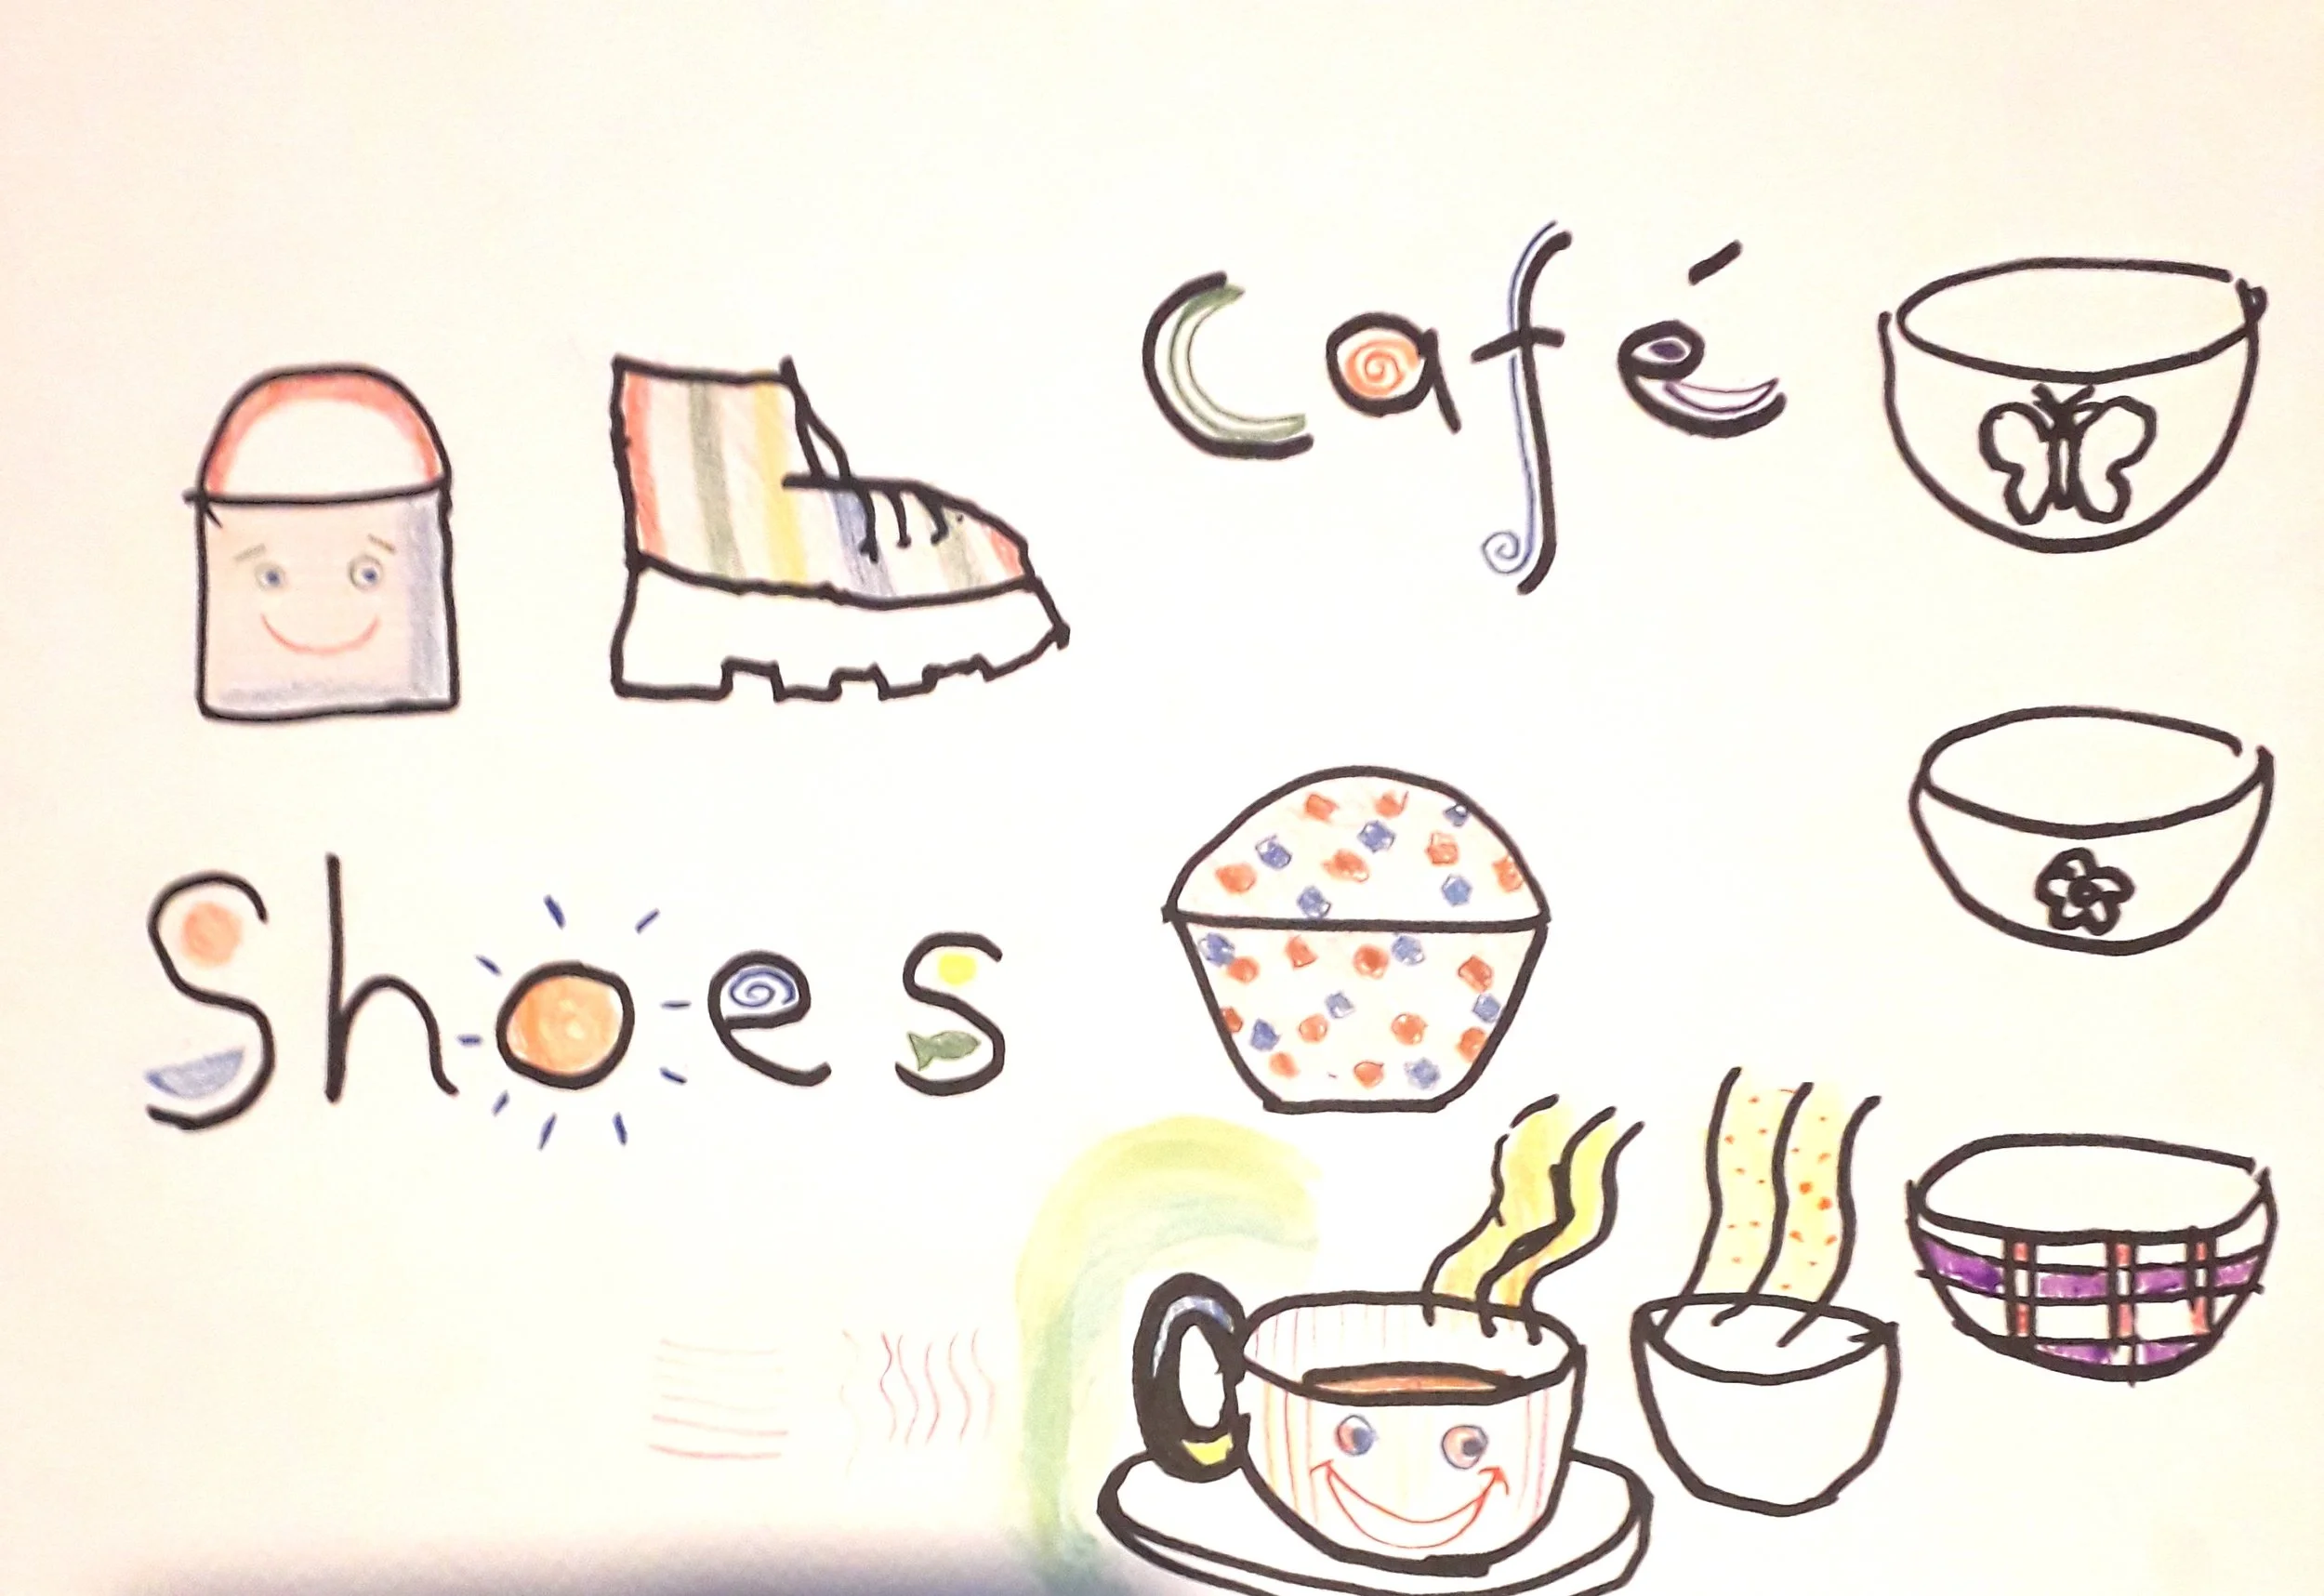 Café
Shoes